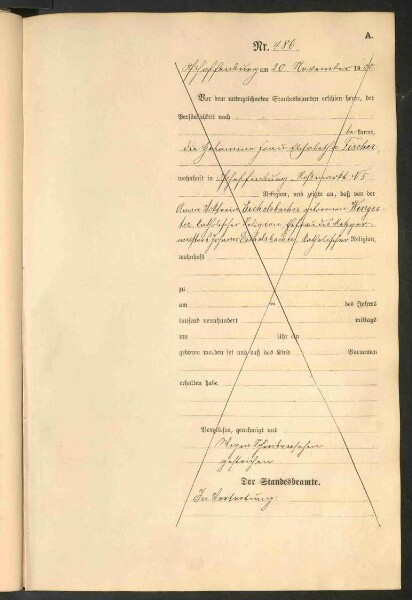 A.
Nr. 486
Aschaffenburg am 20 November 19 00.
Vor dem unterzeichneten Standesbeamten erschien heute, der
Persönlichkeit nach
bekannt,
die Hebamme Frau Elisabetha Fischer,
wohnhaft in Aschaffenburg, Rossmarkt N 5
Religion, und zeigte an, daß von der
Anna Viktoria geborenen
katholischer Religion, Ehefrau des Metzger-
meisters Johann katholischer Religion,
wohnhaft
zu
am ten des Jahres
tausend neunhundert mittags
um Uhr ein
geboren worden sei und daß das Kind Vornamen
erhalten habe.
Vorgelesen, genehmigt und
Wegen Schreibversehen
gestrichen
Der Standesbeamte.
In Vertretung: